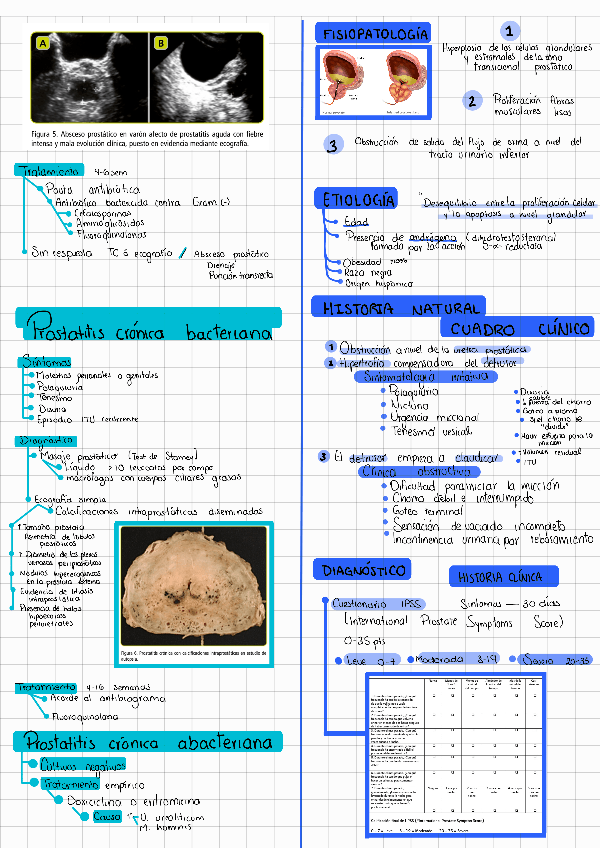 A
B
Figura 5. Absceso prostático en varón afecto de prostatitis aguda con fiebre
intensa y mala evolución clínica, puesto en evidencia mediante ecografía.
Tratamiento 4-6 sem
Pauta antibiótica
Antibiótico bactericida contra Gram (-)
Cefalosporinas
Aminoglucósidos
Fluoroquinolonas
Sin respuesta TC o ecografía / Absceso prostático
Drenaje
Punción transrecta
Prostatitis crónica bacteriana
Síntomas
Molestias perianales o genitales
Polaquiuria
Tenesmo
Disuria
Episodio ITU recurrente
Diagnóstico
Masaje prostático [Test de Stamey]
Líquido >10 leucocitos por campo
macrófagos con cuerpos ciliares grasos
Ecografía simple
Calcificaciones intraprostáticas diseminadas
↑Tamaño prostata
Asimetría de lóbulos
prostáticos
↑ Diámetro de los plexos
venosos periprostáticos
Nódulos hiperecogénicos
en la próstata externa
Evidencia de litiasis
intraprostática
Presencia de halos
hipoecoicos
periuretrales
Figura 6. Prostatitis crónica con calcificaciones intraprostáticas en estudio de
autopsia.
Tratamiento 4-16 semanas
Acorde al antibiograma
Fluoroquinolona
Prostatitis crónica abacteriana
Cultivos negativos
Tratamiento empírico
Doxiciclina o eritromicina
Causa U. urealiticum
M. hominis
FISIOPATOLOGÍA
1
Hiperplasia de las células glandulares
y estromales de la zona
transicional prostática
2 Proliferación fibras
musculares lisas
3 Obstrucción de salida del flujo de orina a nivel del
tracto urinario inferior
ETIOLOGÍA
"Desequilibrio entre la proliferación celular
y la apoptosis a nivel glandular
Edad
Presencia de andrógeno (dihidrotestosterona)
formado por la acción 5-α-reductasa
Obesidad
Raza negra
Origen hispánico
HISTORIA NATURAL
CUADRO CLÍNICO
1 Obstrucción a nivel de la uretra prostática
2 Hipertrofia compensadora del detrusor
Sintomatología irritativa
Polaquiuria
Nicturia
Urgencia miccional
Tenesmo vesical
Disuria
↓ fuerza del chorro
Goteo
si el chorro se
"divide"
Hacer esfuerzo para la
micción
↑Volumen residual
ITU
3 El detrusor empieza a claudicar
Clínica obstructiva
Dificultad para iniciar la micción
Chorro débil e interrumpido
Goteo terminal
Sensación de vaciado incompleto
Incontinencia urinaria por rebosamiento
DIAGNÓSTICO
HISTORIA CLÍNICA
Cuestionario IPSS Síntomas — 30 días
(International Prostate Symptoms Score)
0-35 pts
Leve 0-7 Moderada 8-19 Severa 20-35